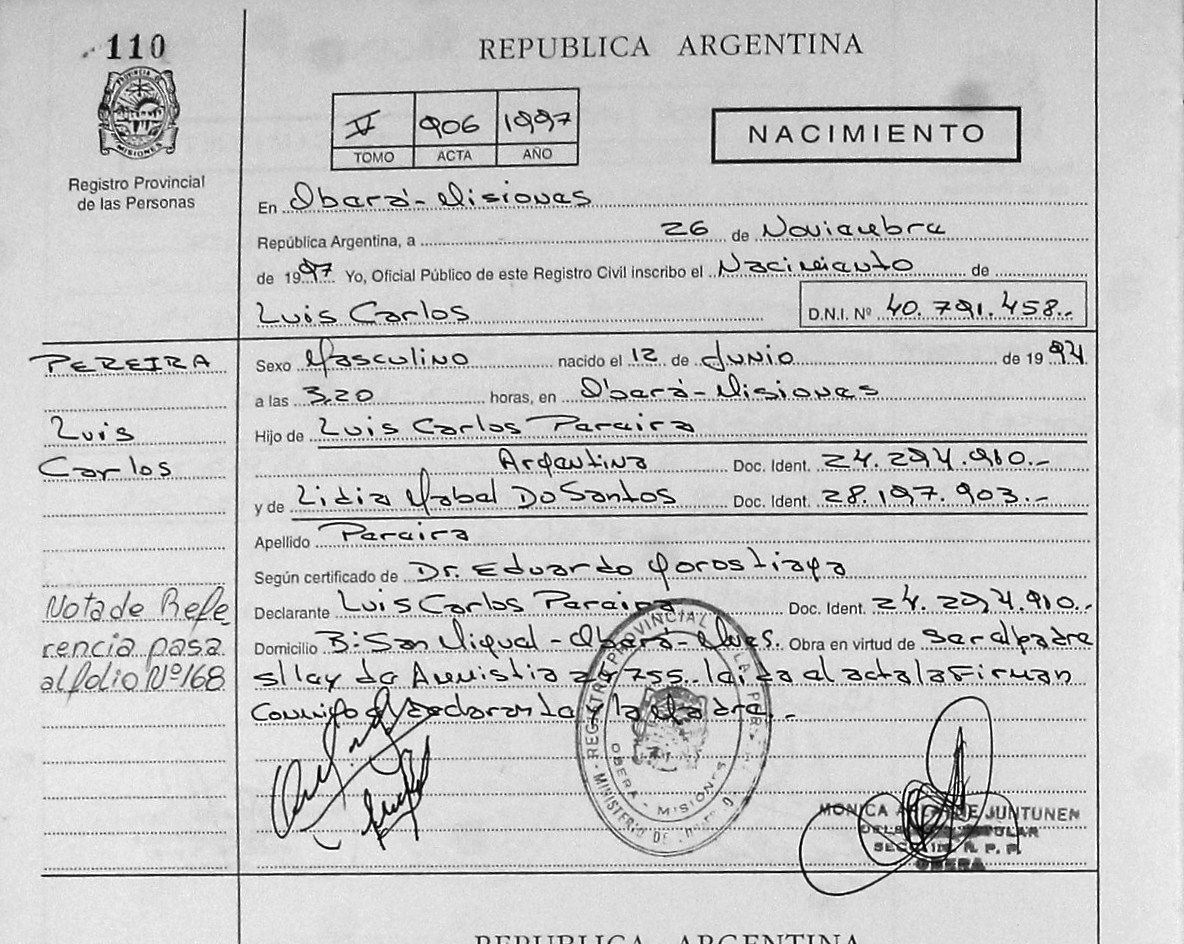 110
REPUBLICA ARGENTINA
PROVINCIA DE MISIONES
Registro Provincial
de las Personas
V 906 1997
TOMO ACTA AÑO
NACIMIENTO
En Oberá - Misiones
República Argentina, a 26 de Noviembre
de 1997 Yo, Oficial Público de este Registro Civil inscribo el Nacimiento de
Luis Carlos D.N.I. Nº 40.791.458.-
PEREIRA
Luis
Carlos
Nota de Refe
rencia pasa
al folio Nº 168
Sexo Masculino nacido el 12 de Junio de 1994
a las 3,20 horas, en Oberá - Misiones
Hijo de Luis Carlos Pereira
Argentina Doc. Ident. 24.294.910.-
y de Lidia Mabel Do Santos Doc. Ident. 28.197.903.-
Apellido Pereira
Según certificado de Dr. Eduardo Gorostiaga
Declarante Luis Carlos Pereira Doc. Ident. 24.294.910.-
Domicilio B: San Miguel - Oberá - Mnes. Obra en virtud de ser el padre
s/ley de Amnistia 24.755. leida el acta la Firman
Conmigo el declarante y la Madre.-
REGISTRO PROVINCIAL DE LAS PERSONAS
OBERA - MISIONES
MINISTERIO DE
MONICA DE JUNTUNEN
TITULAR
SECCION R. P. P.
OBERA
REPUBLICA ARGENTINA